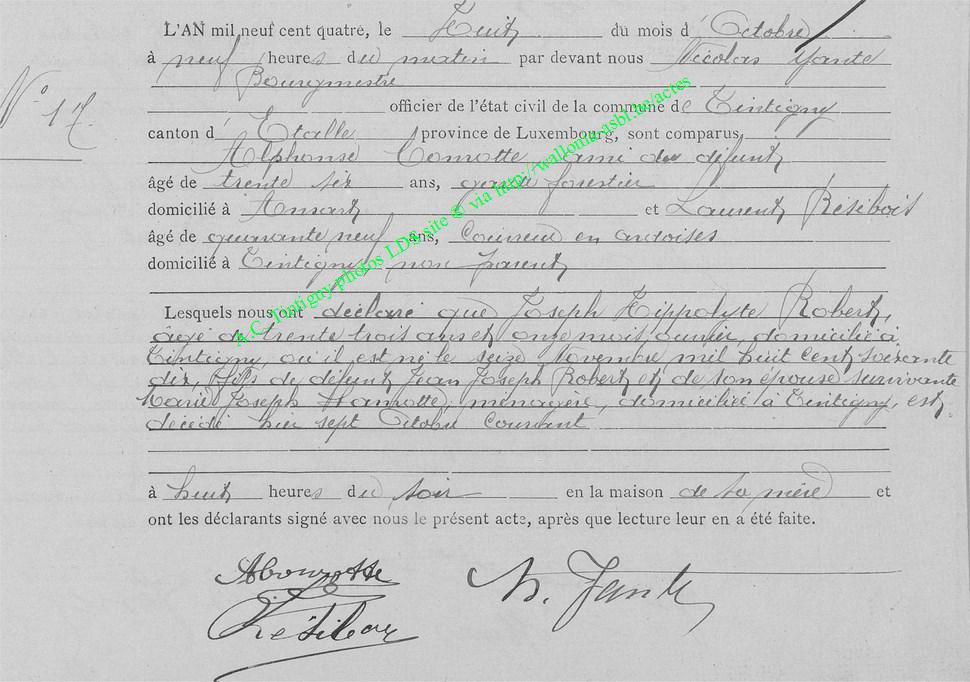 L'AN mil neuf cent quatre, le Huit du mois d' Octobre
à neuf heures du matin par devant nous Nicolas Yante
Bourgmestre
N° 17
officier de l'état civil de la commune de Tintigny
canton d' Etalle province de Luxembourg, sont comparus,
Alphonse ami du défunt
âgé de trente six ans, garde forestier
domicilié à Ansart et Laurent Résibois
âgé de quarante neuf ans, Couvreur en ardoises
domicilié à Tintigny, non parent
Lesquels nous ont déclaré que Joseph Hippolyte Robert,
âgé de trente trois ans et onze mois, ouvrier, domicilié à
Tintigny, où il est né le seize Novembre mil huit cent soixante
dix, fils de défunt Jean Joseph Robert et de son épouse survivante
Marie Joseph ménagère, domiciliée à Tintigny, est
décédé hier sept Octobre courant
à huit heures du soir en la maison de sa mère et
ont les déclarants signé avec nous le présent acte, après que lecture leur en a été faite.
N. Yante
A.C. Tintigny photos LDS site © via http://wallonia.asbl.be/actes